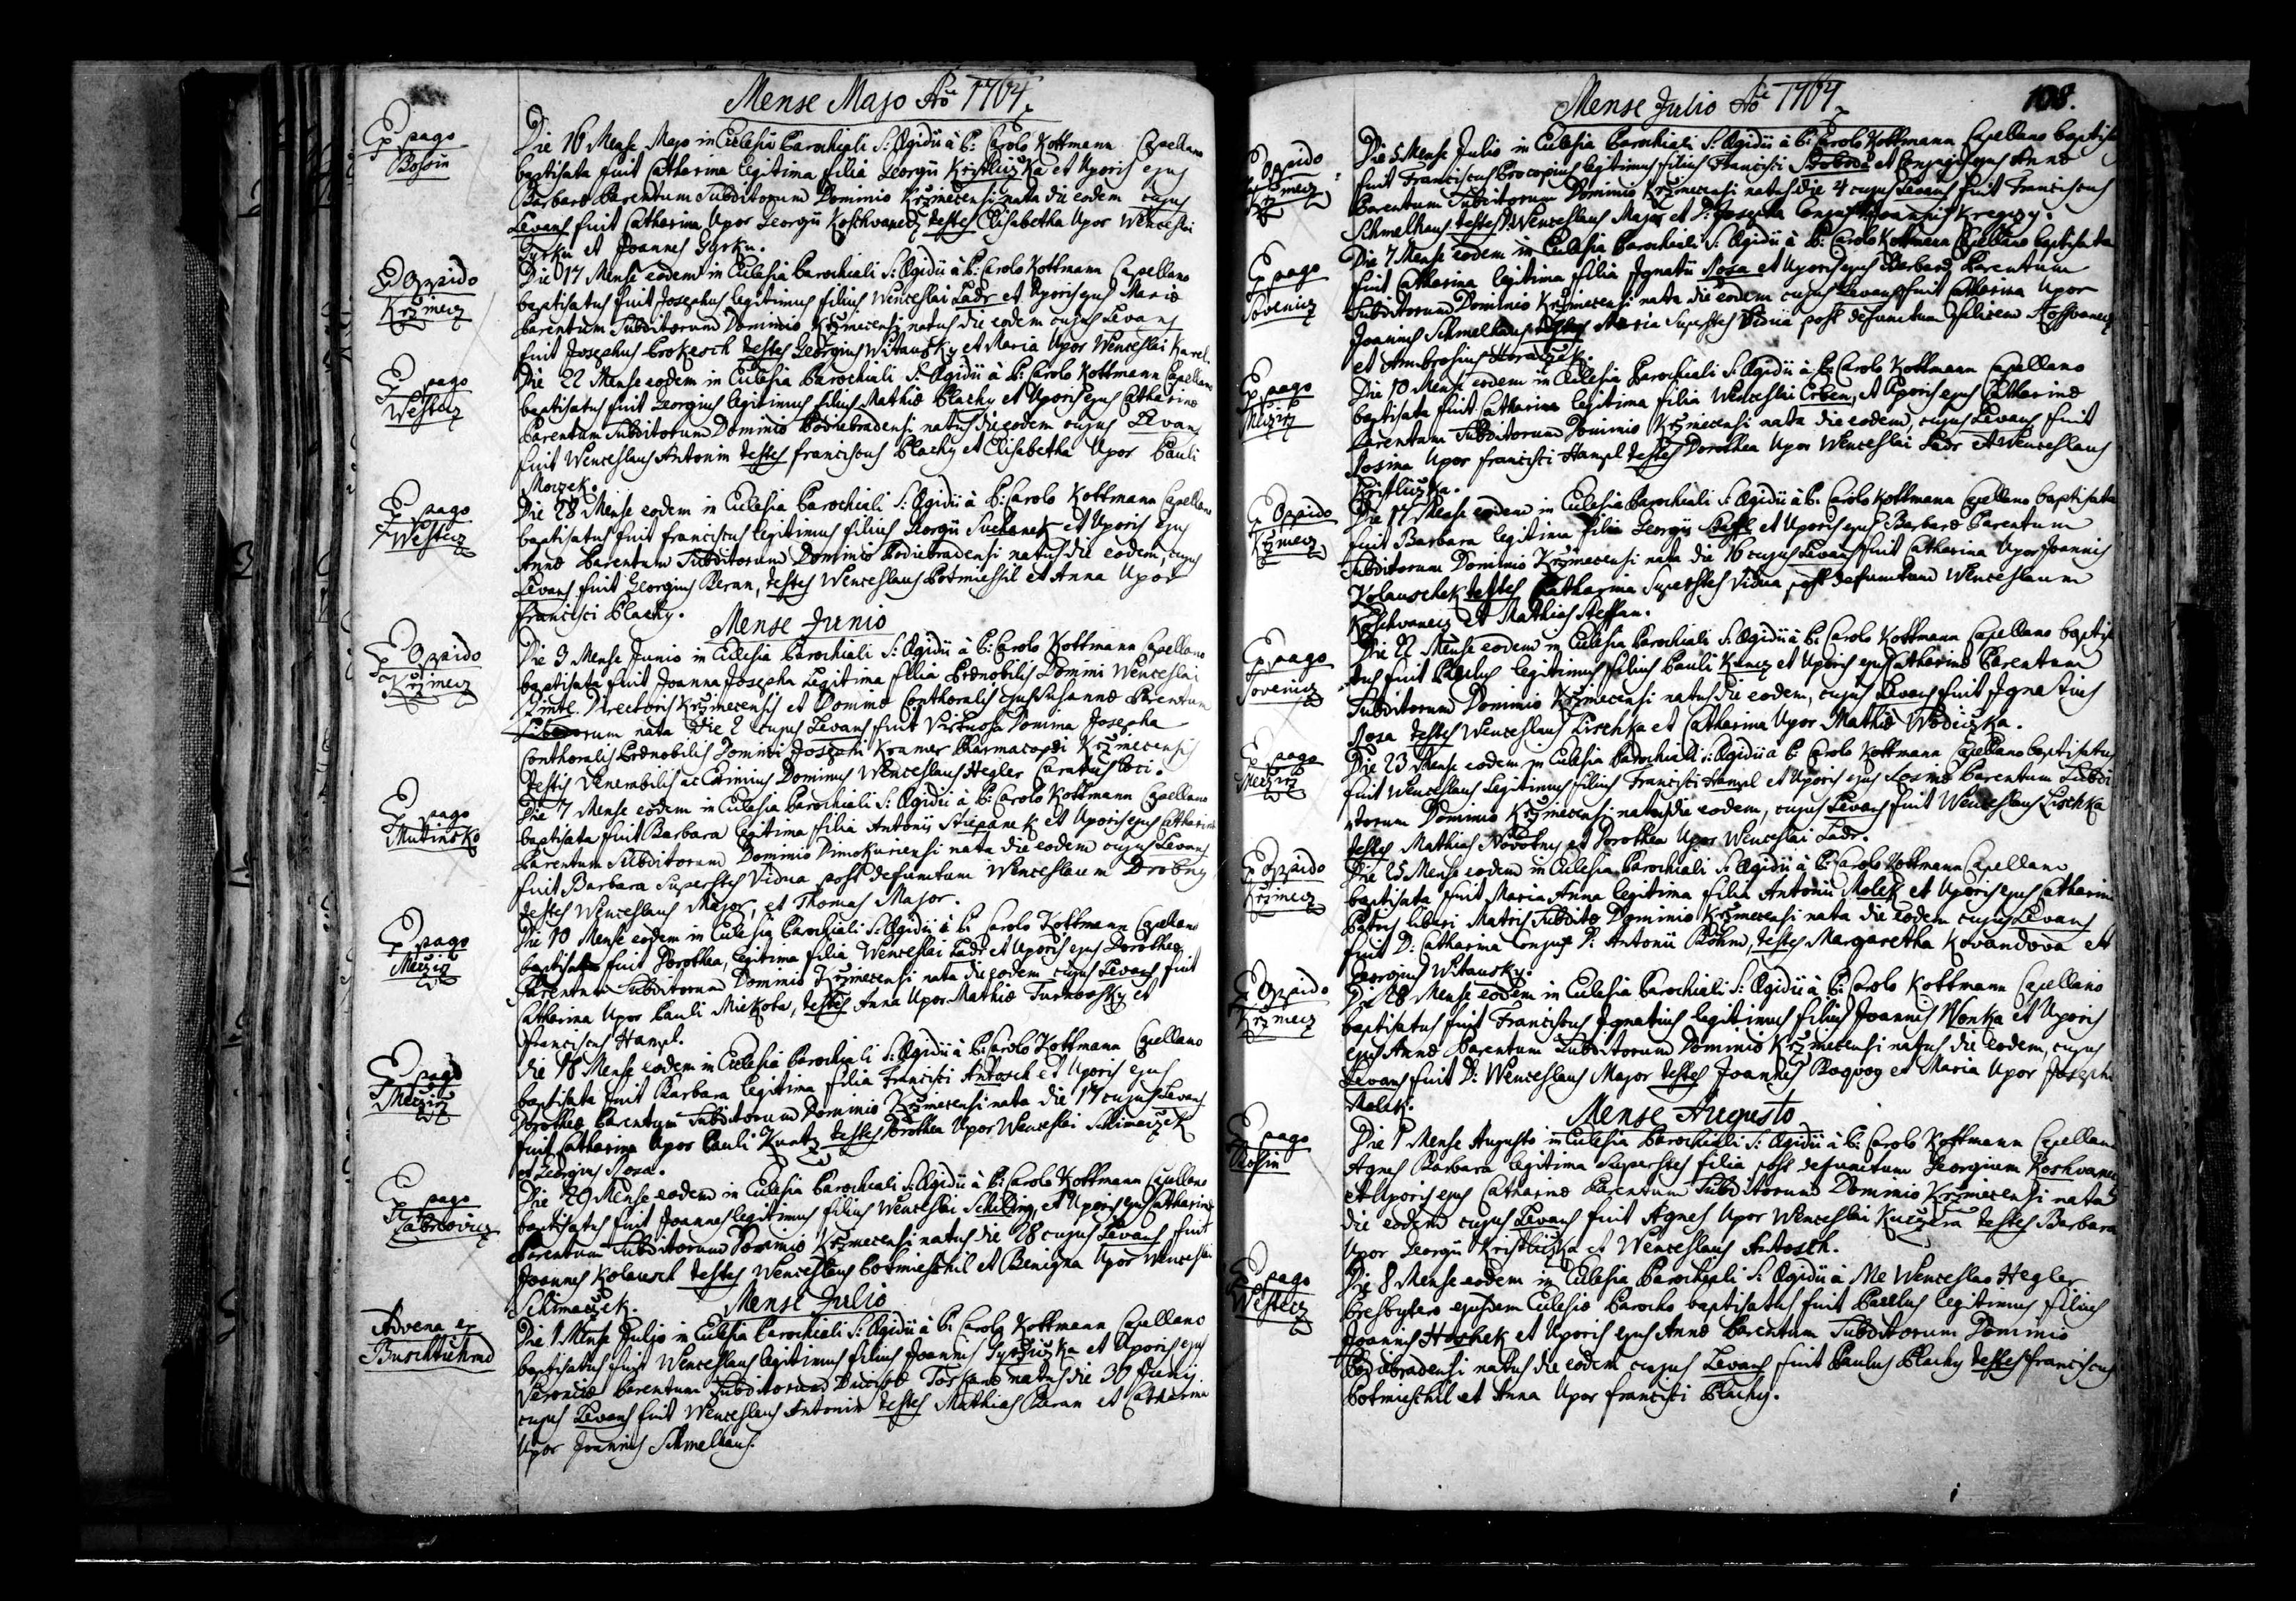 Mense Majo Aõ 1764.
Ex pago
Bosin
Die 16 Mense Majo in Ecclesia Parochiali S: Ægidii à P: Carolo Kottmann Capellano
baptisata fuit Catharina legitima filia Georgii Kristluzka et Uxoris ejus
Barbaræ Parentum Subditorum Dominio Krzinecensi nata die eodem cujus
Levans fuit Catharina Uxor Georgii Koschvanecz testes Elisabetha Uxor Wenceslai
et Joannes
Ex Oppido
Krzinecz
Die 17 Mense eodem in Ecclesia Parochiali S: Ægidii à P: Carolo Kottmann Capellano
baptisatus fuit Josephus legitimus filius Wenceslai Ladr et Uxoris ejus Mariæ
Parentum Subditorum Dominio Krzinecensi natus die eodem cujus Levans
fuit Josephus Prokesch testes Georgius Witausky et Maria Uxor Wenceslai Karel.
Ex pago
Westecz
Die 22 Mense eodem in Ecclesia Parochiali S: Ægidii à P: Carolo Kottmann Capellano
baptisatus fuit Georgius legitimus filius Mathiæ Plachy et Uxoris ejus Catharinæ
Parentum Subditorum Dominio Podiebradensi natus die eodem cujus Levans
fuit Wenceslaus Antonin testes Franciscus Plachy et Elisabetha Uxor Pauli
Ex pago
Westecz
Die 28 Mense eodem in Ecclesia Parochiali S: Ægidii à P: Carolo Kottmann Capellano
baptisatus fuit Franciscus legitimus filius Georgii Suchanek et Uxoris ejus
Annæ Parentum Subditorum Dominio Podiebradensi natus die eodem, cujus
Levans fuit Georgius Beran, testes Wenceslaus Potmiessil et Anna Uxor
Francisci Plachy.
Mense Junio
Ex Oppido
Krzinecz
Die 3 Mense Junio in Ecclesia Parochiali S: Ægidii à P: Carolo Kottmann Capellano
baptisata fuit Joanna Josepha Legitima filia Prænobilis Domini Wenceslai
Directoris Krzinecensis et Dominæ Conthoralis ejus Susannæ Parentum
Liberorum nata die 2 cujus Levans fuit Virtuosa Domina Josepha
Conthoralis Prænobilis Domini Josephi Kramer Pharmacopæi Krzinecensis
testis Venerabilis ac Eximius Dominus Wenceslaus Hegler Curatus loci.
Ex pago
Mutinsko
Die 7 Mense eodem in Ecclesia Parochiali S: Ægidii à P: Carolo Kottmann Capellano
baptisata fuit Barbara legitima filia Antonii Stiepanek et Uxoris ejus Catharinæ
Parentum Subditorum Dominio Dimokuriensi nata die eodem cujus Levans
fuit Barbara Superstes Vidua post defunctum Wenceslaum Drobny
testes Wenceslaus Major, et Thomas Major.
Ex pago
Meczirz
Die 10 Mense eodem in Ecclesia Parochiali S: Ægidii à P: Carolo Kottmann Capellano
baptisata fuit Dorothea, legitima filia Wenceslai Ladr et Uxoris ejus Dorotheæ
Parentum Subditorum Dominio Krzinecensi nata die eodem cujus Levans fuit
Catharina Uxor Pauli Mickota, testes Anna Uxor Mathiæ Turnovsky et
Franciscus Hampl.
Ex pago
Meczirz
Die 18 Mense eodem in Ecclesia Parochiali S: Ægidii à P: Carolo Kottmann Capellano
baptisata fuit Barbara legitima filia Francisci Antosch et Uxoris ejus
Dorotheæ Parentum Subditorum Dominio Krzinecensi nata die 17 cujus Levans
fuit Catharina Uxor Pauli Kuntz testes Dorothea Uxor Wenceslai Schimaczek
et Georgius Rosa.
Ex pago
Die 29 Mense eodem in Ecclesia Parochiali S: Ægidii à P: Carolo Kottmann Capellano
baptisatus fuit Joannes legitimus filius Wenceslai Schiling, et Uxoris ejus Catharinæ
Parentum Subditorum Dominio Krzinecensi natus die 28 cujus Levans fuit
Joannes Kolausch testes Wenceslaus Potmieschil et Benigna Uxor Wenceslai
Schimaczek.
Mense Julio
Advena ex
Buschtiehrad
Die 1 Mense Julio in Ecclesia Parochiali S: Ægidii à P: Carolo Kottmann Capellano
baptisatus fuit Wenceslaus legitimus filius Joannis et Uxoris ejus
Veronicæ Parentum Subditorum Ducissæ Toskanæ natus die 30 Junij.
cujus Levans fuit Wenceslaus Antonin testes Mathias Beran et Catharina
Uxor Joannis Schmelhaus.
Mense Julio Aõ 1764
108.
Ex Oppido
Krzinecz
Die 5 Mense Julio in Ecclesia Parochiali S: Ægidii à P: Carolo Kottmann Capellano baptisatus
fuit Franciscus Procopius legitimus filius Francisci Swoboda et Conjugis ejus Annæ
Parentum Subditorum Dominio Krzinecensi natus die 4 cujus Levans fuit Franciscus
Schmelhaus testes D: Wenceslaus Major et D: Josepha Conjux Joannis Kregczy.
Ex pago
Sovenicz
Die 7 Mense eodem in Ecclesia Parochiali S: Ægidii à P: Carolo Kottmann Capellano baptisata
fuit Catharina legitima filia Ignatii Rosa et Uxoris ejus Barbaræ Parentum
Subditorum Dominio Krzinecensi nata die eodem cujus Levans fuit Catharina Uxor
Joannis Schmelhaus testes Maria Superstes Vidua post defunctum Felicem Koschvanecz
et Ambrosius Horaczek.
Ex pago
Meczirz
Die 10 Mense eodem in Ecclesia Parochiali S: Ægidii à P: Carolo Kottmann Capellano
baptisata fuit Catharina legitima filia Wenceslai Erben, et Uxoris ejus Catharinæ
Parentum Subditorum Dominio Krzinecensi nata die eodem, cujus Levans fuit
Rosina Uxor Francisci Hampl testes Dorothea Uxor Wenceslai Ladr et Wenceslaus
Kristluzka.
Ex Oppido
Krzinecz
Die 17 Mense eodem in Ecclesia Parochiali S: Ægidii à P: Carolo Kottmann Capellano baptisata
fuit Barbara legitima filia Georgii et Uxoris ejus Barbaræ Parentum
Subditorum Dominio Krzinecensi nata die 16 cujus Levans fuit Catharina Uxor Joannis
Kolauschek testes Catharina Superstes Vidua post defunctum Wenceslaum
Koschvanecz et Mathias Steffan.
Ex pago
Sovenicz
Die 22 Mense eodem in Ecclesia Parochiali S: Ægidii à P: Carolo Kottmann Capellano baptisa
tus fuit Paulus legitimus filius Pauli Kuncz et Uxoris ejus Catharinæ Parentum
Subditorum Dominio Krzinecensi natus die eodem, cujus Levans fuit Ignatius
Rosa testes Wenceslaus Lischka et Catharina Uxor Mathiæ Wodiczka.
Ex pago
Meczirz
Die 23 Mense eodem in Ecclesia Parochiali S: Ægidii à P: Carolo Kottmann Capellano baptisatus
fuit Wenceslaus Legitimus filius Francisci Hampl et Uxoris ejus Rosinæ Parentum Subdi
torum Dominio Krzinecensi natus die eodem, cujus Levans fuit Wenceslaus Lischka
testes Mathias Novotny et Dorothea Uxor Wenceslai Ladr.
Ex Oppido
Krzinecz
Die 25 Mense eodem in Ecclesia Parochiali S: Ægidii à P: Carolo Kottmann Capellano
baptisata fuit Maria Anna legitima filia Antonii Molek et Uxoris ejus Catharinæ
Patris liberi Matris Subditæ Dominio Krzinecensi nata die eodem cujus Levans
fuit D: Catharina Conjux D: Antonii Böhm, testes Margaretha Kovandova et
Georgius Witausky.
Ex Oppido
Krzinecz
Die 28 Mense eodem in Ecclesia Parochiali S: Ægidii à P: Carolo Kottmann Capellano
baptisatus fuit Franciscus Ignatius legitimus filius Joannis Wonka et Uxoris
ejus Annæ Parentum Subditorum Dominio Krzinecensi natus die eodem, cujus
Levans fuit D: Wenceslaus Major testes Joannes et Maria Uxor Josephi
Molek.
Mense Augusto
Ex pago
Die 1 Mense Augusto in Ecclesia Parochiali S: Ægidii à P: Carolo Kottmann Capellano
Agnes Barbara legitima Superstes filia post defunctum Georgium Koschvanecz
et Uxoris ejus Catharinæ Parentum Subditorum Dominio Krzinecensi nata
die eodem cujus Levans fuit Agnes Uxor Wenceslai Kuczera testes Barbara
Uxor Georgii Kristluzka et Wenceslaus Antosch.
Ex pago
Westecz
Die 8 Mense eodem in Ecclesia Parochiali S: Ægidii à Me Wenceslao Hegler
Presbytero ejusdem Ecclesiæ Parocho baptisatus fuit Paulus legitimus filius
Joannis Hashek et Uxoris ejus Annæ Parentum Subditorum Dominio
Podiebradensi natus die eodem cujus Levans fuit Paulus Plachy testes Franciscus
Potmieschil et Anna Uxor Francisci Plachy.